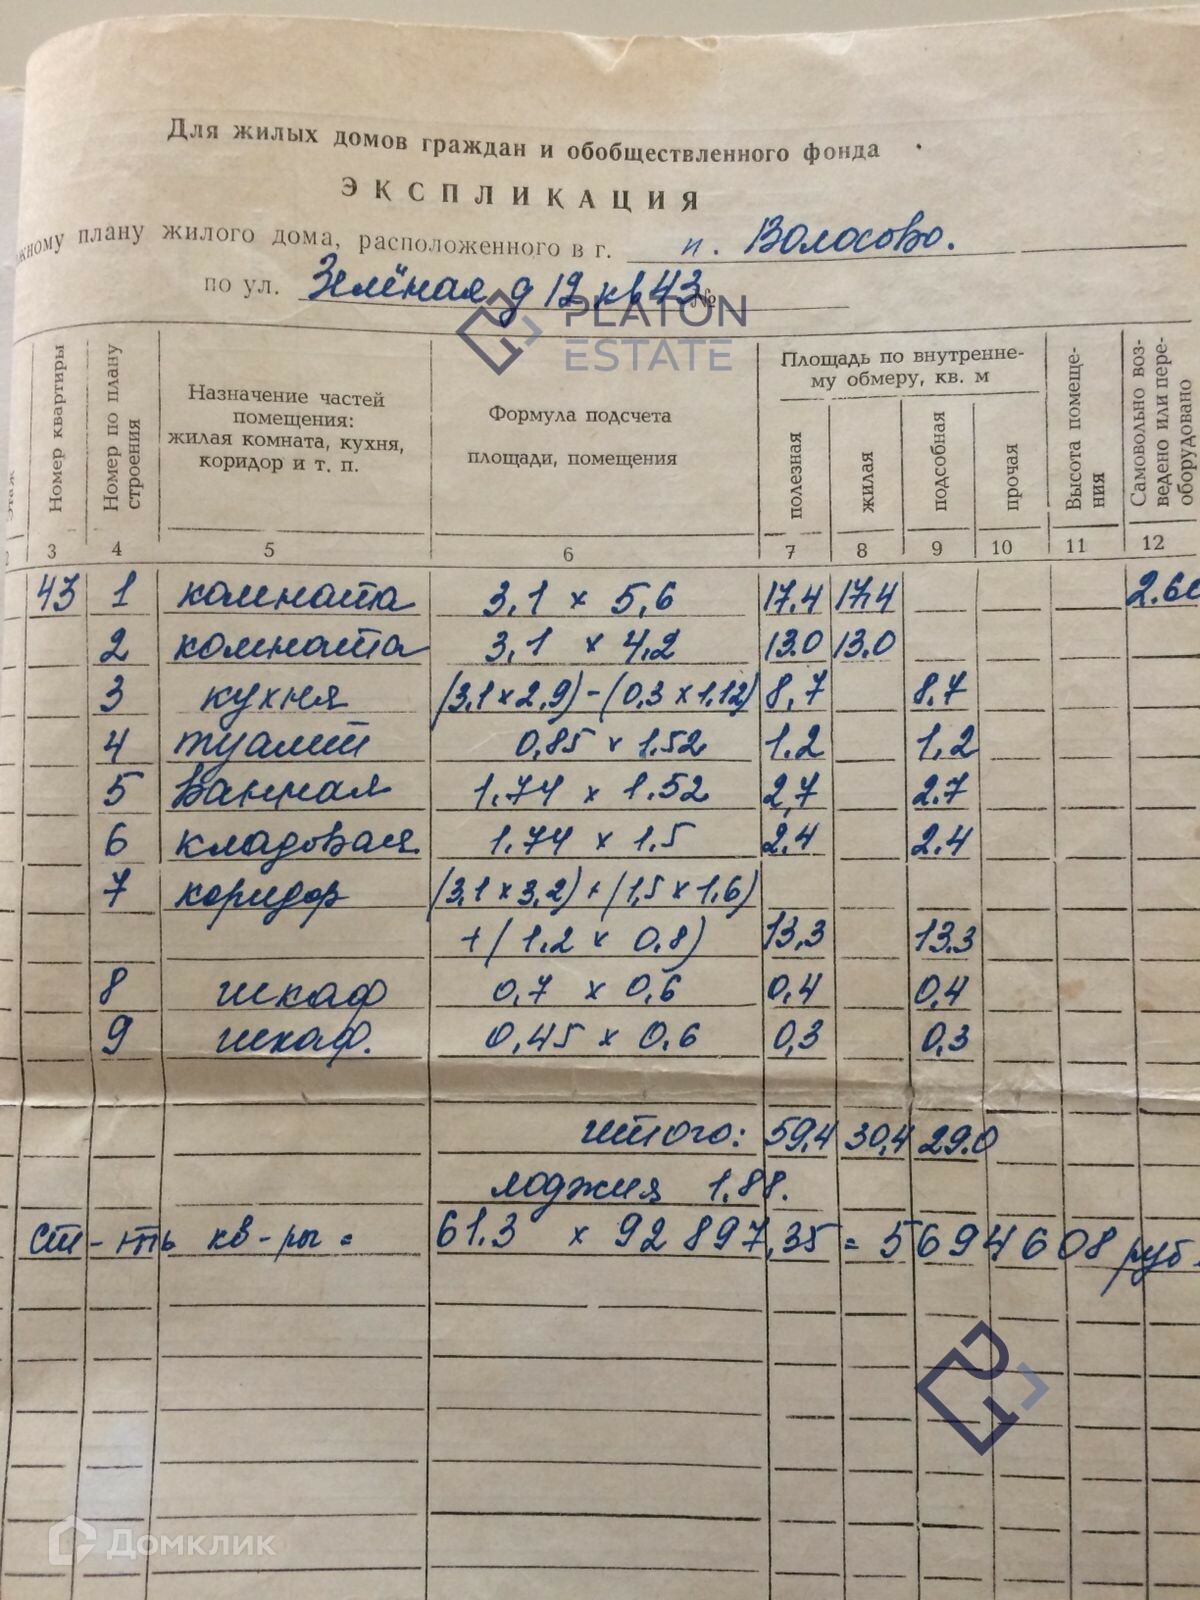 Для жилых домов граждан и обобществленного фонда
ЭКСПЛИКАЦИЯ
жному плану жилого дома, расположенного в г. п. Волосово.
по ул. Зелёная д 12 кв 43 №
PLATON
ESTATE
этаж
Номер квартиры
Номер по плану строения
Назначение частей помещения: жилая комната, кухня, коридор и т. п.
Формула подсчета площади, помещения
Площадь по внутренне-
му обмеру, кв. м
полезная
жилая
подсобная
прочая
Высота помеще-
ния
Самовольно воз-
ведено или пере-
оборудовано
3 4 5 6 7 8 9 10 11 12
43 1 комната 3,1 × 5,6 17.4 17.4
2 комната 3,1 × 4,2 13.0 13.0
3 кухня (3,1×2,9)-(0,3×1,12) 8,7 8.7
4 туалет 0,85 × 1.52 1.2 1,2
5 Ванная 1.74 × 1.52 2,7 2.7
6 кладовая 1.74 × 1.5 2.4 2.4
7 коридор (3,1×3,2)+(1,5×1,6)
+(1.2 × 0,8) 13,3 13.3
8 шкаф 0,7 × 0,6 0,4 0,4
9 шкаф. 0,45 × 0,6 0,3 0,3
итого: 59,4 30,4 29.0
лоджия 1.88.
ст-ть кв-ры = 61.3 × 92 897,35 = 5694608 руб.
Домклик